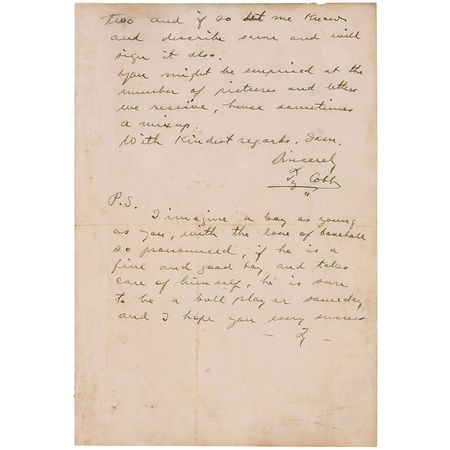 two and if so let me know
and describe same and will
sign it also.
You might be surprised at the
number of pictures and letters
we receive, hence sometimes
a mixup.
With Kindest regards, I am.
Sincerely
Ty Cobb
P.S.
I imagine a boy as young
as you, with the love of baseball
so pronounced, if he is a
fine and good boy and takes
care of himself, he is sure
to be a ball player someday
and I hope you every success
— Ty —